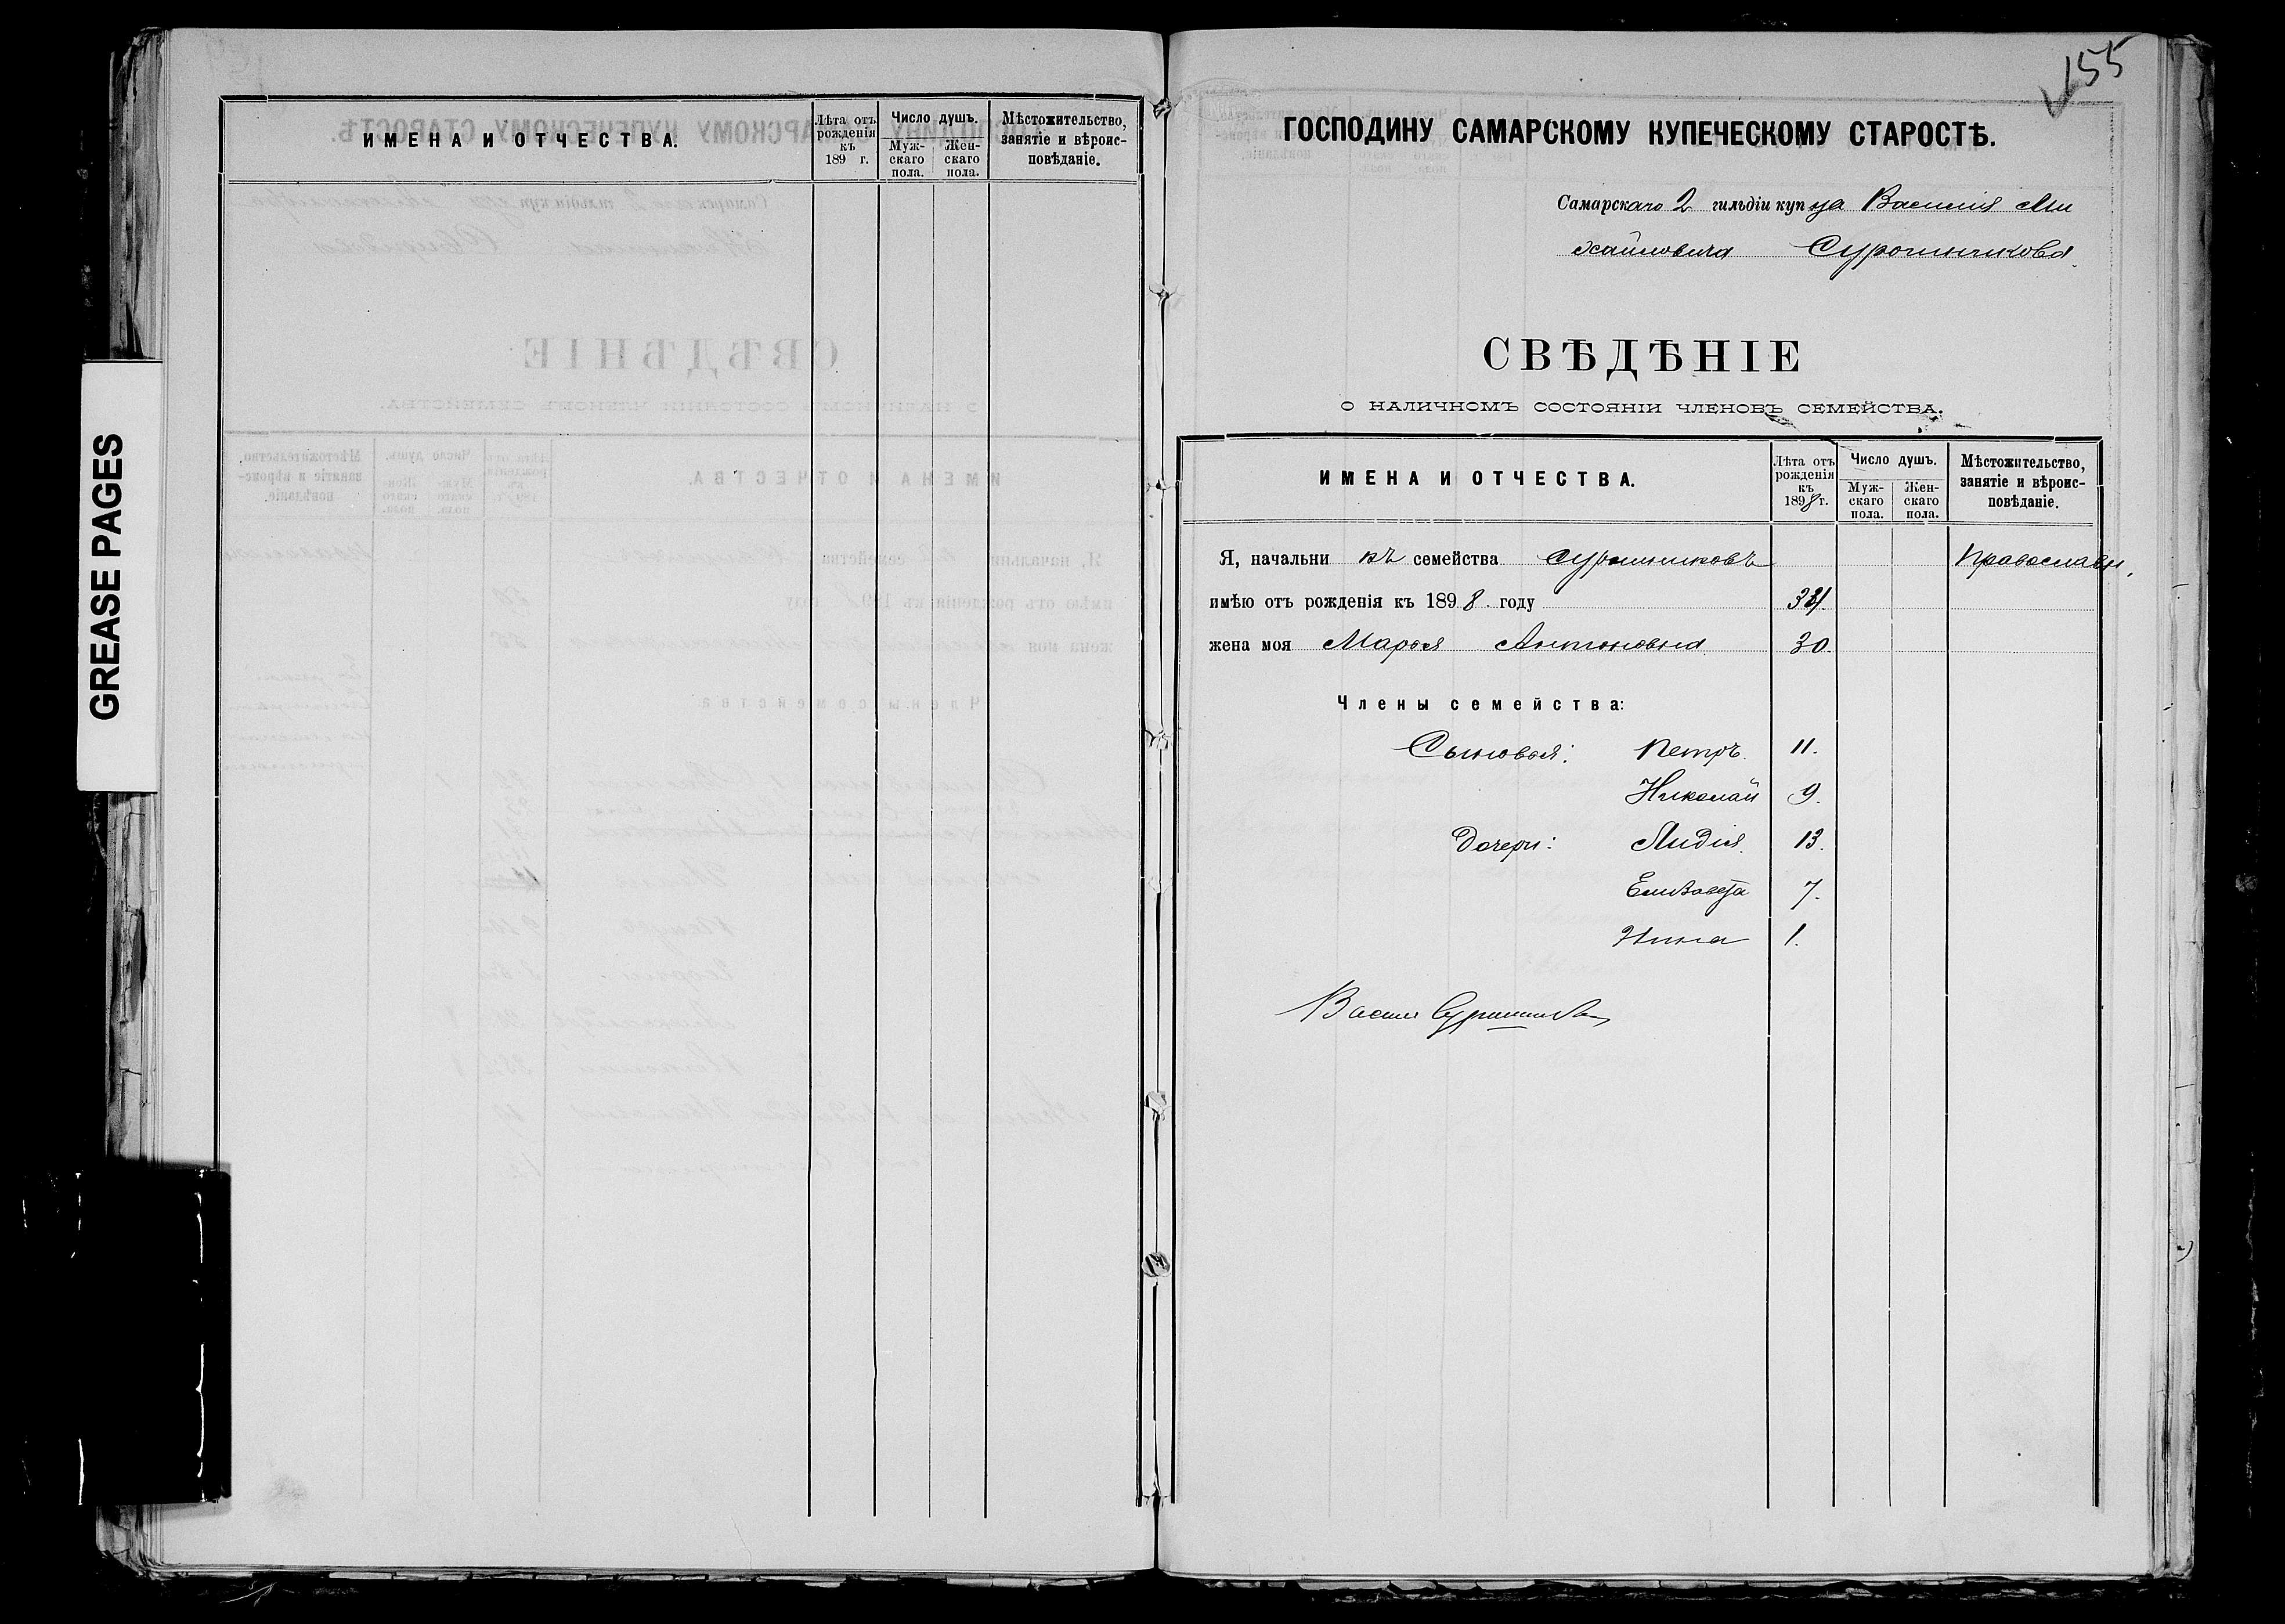 GREASE PAGES
ИМЕНА И ОТЧЕСТВА.
Лѣта отъ рожденія къ 189 г.
Число душъ.
Муж- скаго пола.
Жен- скаго пола.
Мѣстожительство, занятіе и вѣроис- повѣданіе.
155
ГОСПОДИНУ САМАРСКОМУ КУПЕЧЕСКОМУ СТАРОСТѢ.
Самарскаго 2 гильдіи купца Василія Ми
хайловича Сурошникова
СВѢДѢНІЕ
О НАЛИЧНОМЪ СОСТОЯНІИ ЧЛЕНОВЪ СЕМЕЙСТВА.
ИМЕНА И ОТЧЕСТВА.
Лѣта отъ рожденія къ 1898 г.
Число душъ.
Муж- скаго пола.
Жен- скаго пола.
Мѣстожительство, занятіе и вѣроис- повѣданіе.
Я, начальникъ семейства Сурошниковъ Православн.
имѣю отъ рожденія къ 1898 году
жена моя Марья Антоновна 30.
Члены семейства:
Сыновья: Петръ. 11.
Николай 9.
Дочери: Лидія. 13.
Елизавета 7.
Нина 1.
Васил Сурошников